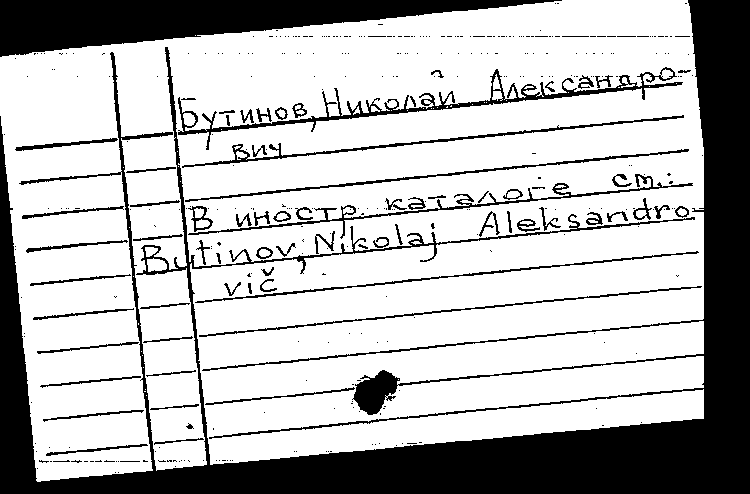 Бутинов, Николай Александро-
вич
В иностр. каталоге см.:
Butinov, Nikolaj Aleksandro-
vič